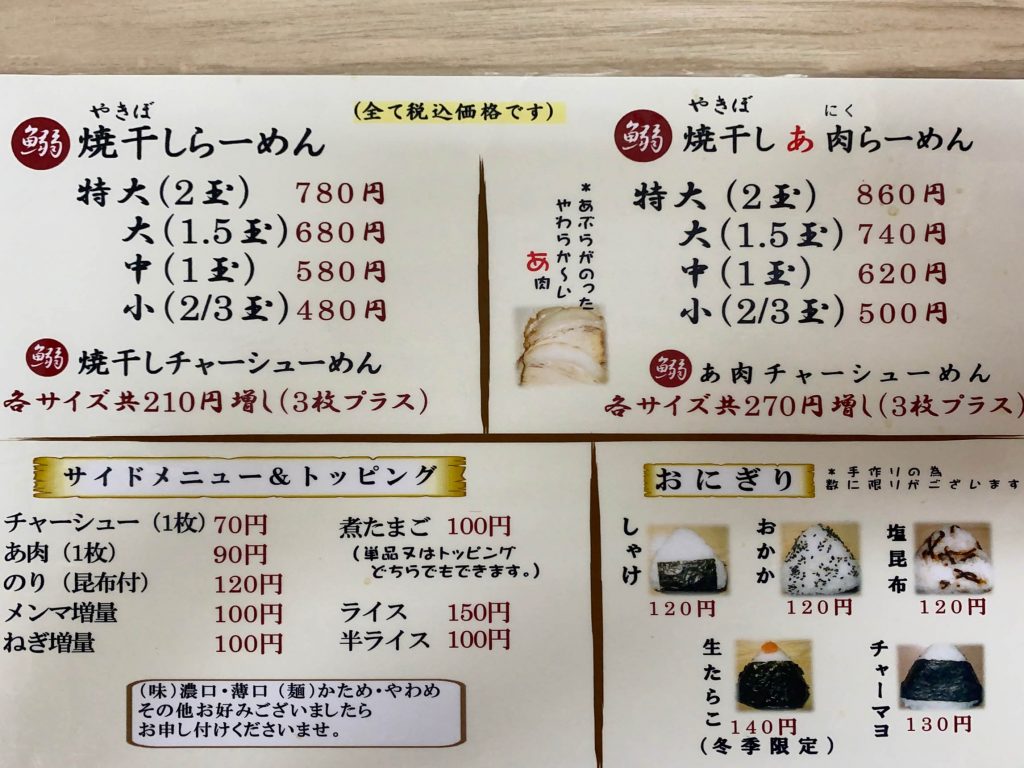 (全て税込価格です)
やきぼ
鰯 焼干しらーめん
特大(2玉) 780円
大(1.5玉) 680円
中(1玉) 580円
小(2/3玉) 480円
鰯 焼干しチャーシューめん
各サイズ共210円増し(3枚プラス)
*あぶらがのった
やわらか~い
あ肉
やきぼ にく
鰯 焼干しあ肉らーめん
特大(2玉) 860円
大(1.5玉) 740円
中(1玉) 620円
小(2/3玉) 500円
鰯 あ肉チャーシューめん
各サイズ共270円増し(3枚プラス)
サイドメニュー&トッピング
チャーシュー(1枚) 70円
あ肉(1枚) 90円
のり(昆布付) 120円
メンマ増量 100円
ねぎ増量 100円
煮たまご 100円
(単品又はトッピング
どちらでもできます。)
ライス 150円
半ライス 100円
(味)濃口・薄口(麺)かため・やわめ
その他お好みございましたら
お申し付けくださいませ。
おにぎり
*手作りの為
数に限りがございます
しゃけ
120円
おかか
120円
塩昆布
120円
生たらこ
140円
(冬季限定)
チャーマヨ
130円